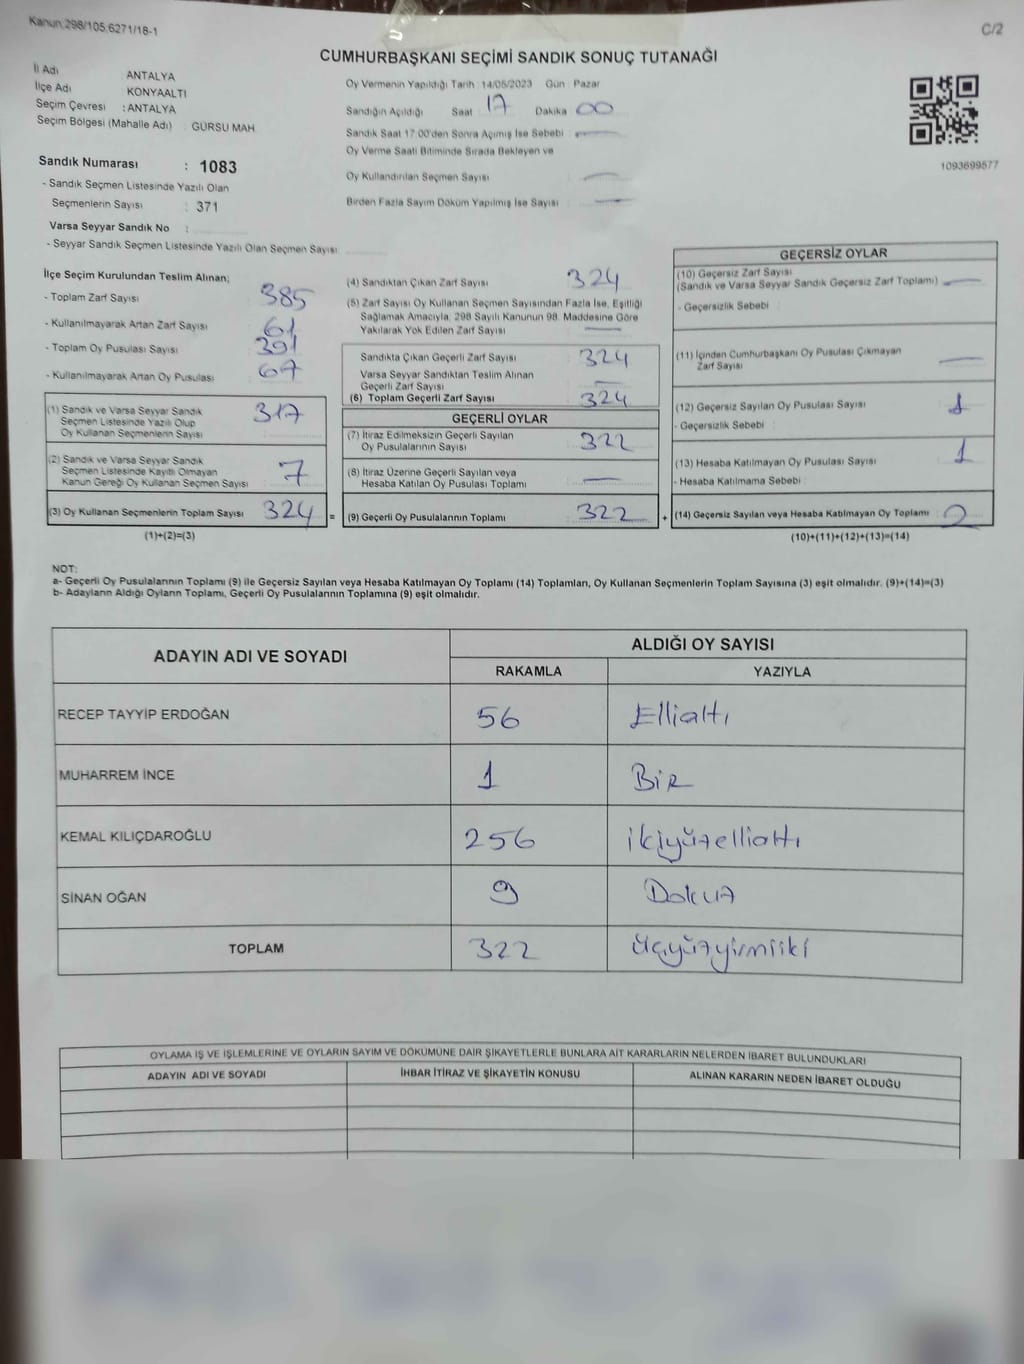 Kanun:298/105;6271/18-1
C/2
CUMHURBAŞKANI SEÇİMİ SANDIK SONUÇ TUTANAĞI
İl Adı : ANTALYA
İlçe Adı : KONYAALTI
Seçim Çevresi : ANTALYA
Seçim Bölgesi (Mahalle Adı) : GÜRSU MAH
Oy Vermenin Yapıldığı Tarih : 14/05/2023 Gün : Pazar
Sandığın Açıldığı Saat 17 Dakika 00
Sandık Saat 17:00'den Sonra Açılmış İse Sebebi :
Oy Verme Saati Bitiminde Sırada Bekleyen ve
Oy Kullandırılan Seçmen Sayısı :
Birden Fazla Sayım Döküm Yapılmış İse Sayısı :
1093699577
Sandık Numarası : 1083
- Sandık Seçmen Listesinde Yazılı Olan
Seçmenlerin Sayısı : 371
Varsa Seyyar Sandık No :
- Seyyar Sandık Seçmen Listesinde Yazılı Olan Seçmen Sayısı:
İlçe Seçim Kurulundan Teslim Alınan;
- Toplam Zarf Sayısı : 385
- Kullanılmayarak Artan Zarf Sayısı : 61
- Toplam Oy Pusulası Sayısı : 391
- Kullanılmayarak Artan Oy Pusulası : 67
(1) Sandık ve Varsa Seyyar Sandık
Seçmen Listesinde Yazılı Olup
Oy Kullanan Seçmenlerin Sayısı : 317
(2) Sandık ve Varsa Seyyar Sandık
Seçmen Listesinde Kayıtlı Olmayan
Kanun Gereği Oy Kullanan Seçmen Sayısı : 7
(3) Oy Kullanan Seçmenlerin Toplam Sayısı : 324 =
(1)+(2)=(3)
(4) Sandıktan Çıkan Zarf Sayısı : 324
(5) Zarf Sayısı Oy Kullanan Seçmen Sayısından Fazla İse, Eşitliği
Sağlamak Amacıyla, 298 Sayılı Kanunun 98. Maddesine Göre
Yakılarak Yok Edilen Zarf Sayısı :
Sandıkta Çıkan Geçerli Zarf Sayısı : 324
Varsa Seyyar Sandıktan Teslim Alınan
Geçerli Zarf Sayısı :
(6) Toplam Geçerli Zarf Sayısı : 324
GEÇERLİ OYLAR
(7) İtiraz Edilmeksizin Geçerli Sayılan
Oy Pusulalarının Sayısı : 322
(8) İtiraz Üzerine Geçerli Sayılan veya
Hesaba Katılan Oy Pusulası Toplamı :
(9) Geçerli Oy Pusulalarının Toplamı : 322 +
GEÇERSİZ OYLAR
(10) Geçersiz Zarf Sayısı
(Sandık ve Varsa Seyyar Sandık Geçersiz Zarf Toplamı) :
- Geçersizlik Sebebi :
(11) İçinden Cumhurbaşkanı Oy Pusulası Çıkmayan
Zarf Sayısı :
(12) Geçersiz Sayılan Oy Pusulası Sayısı : 1
- Geçersizlik Sebebi :
(13) Hesaba Katılmayan Oy Pusulası Sayısı : 1
- Hesaba Katılmama Sebebi :
(14) Geçersiz Sayılan veya Hesaba Katılmayan Oy Toplamı : 2
(10)+(11)+(12)+(13)=(14)
NOT:
a- Geçerli Oy Pusulalarının Toplamı (9) ile Geçersiz Sayılan veya Hesaba Katılmayan Oy Toplamı (14) Toplamları, Oy Kullanan Seçmenlerin Toplam Sayısına (3) eşit olmalıdır. (9)+(14)=(3)
b- Adayların Aldığı Oyların Toplamı, Geçerli Oy Pusulalarının Toplamına (9) eşit olmalıdır.
ADAYIN ADI VE SOYADI
ALDIĞI OY SAYISI
RAKAMLA YAZIYLA
RECEP TAYYİP ERDOĞAN 56 Ellialtı
MUHARREM İNCE 1 Bir
KEMAL KILIÇDAROĞLU 256 ikiyüzellialtı
SİNAN OĞAN 9 Dokuz
TOPLAM 322 üçyüzyirmiiki
OYLAMA İŞ VE İŞLEMLERİNE VE OYLARIN SAYIM VE DÖKÜMÜNE DAİR ŞİKAYETLERLE BUNLARA AİT KARARLARIN NELERDEN İBARET BULUNDUKLARI
ADAYIN ADI VE SOYADI İHBAR İTİRAZ VE ŞİKAYETİN KONUSU ALINAN KARARIN NEDEN İBARET OLDUĞU